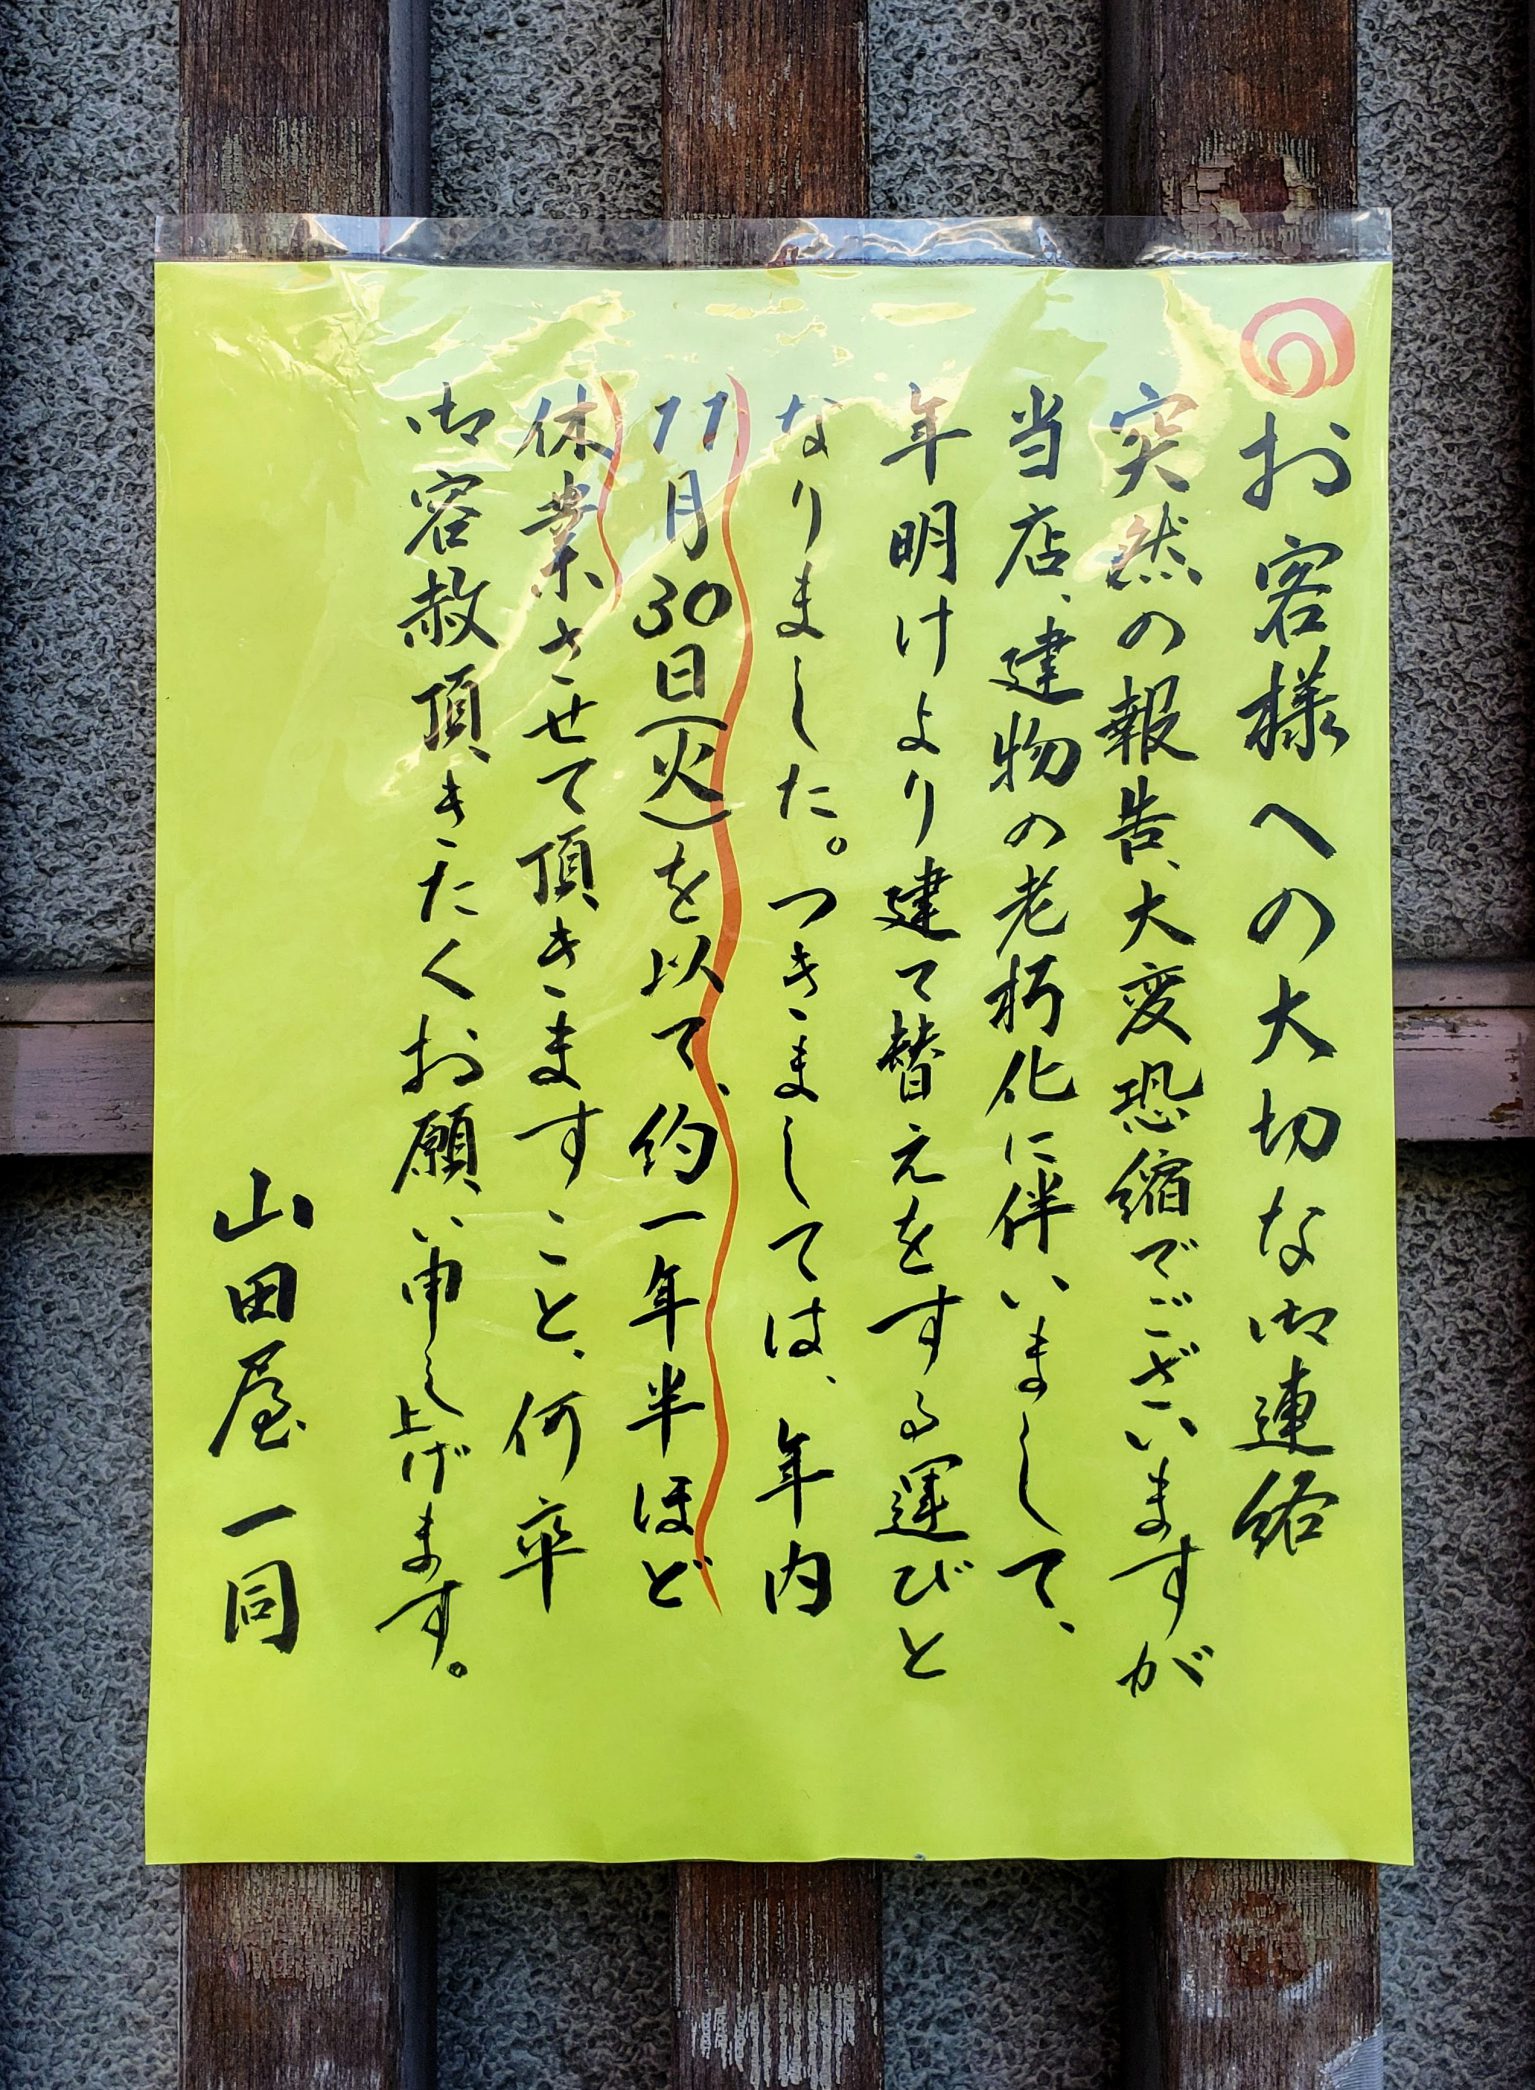 お客様への大切な御連絡
突然の報告、大変恐縮でございますが
当店、建物の老朽化に伴いまして、
年明けより建て替えをする運びと
なりました。つきましては、年内
11月30日(火)を以て、約一年半ほど
休業させて頂きますこと、何卒
御容赦頂きたくお願い申し上げます。
山田屋一同